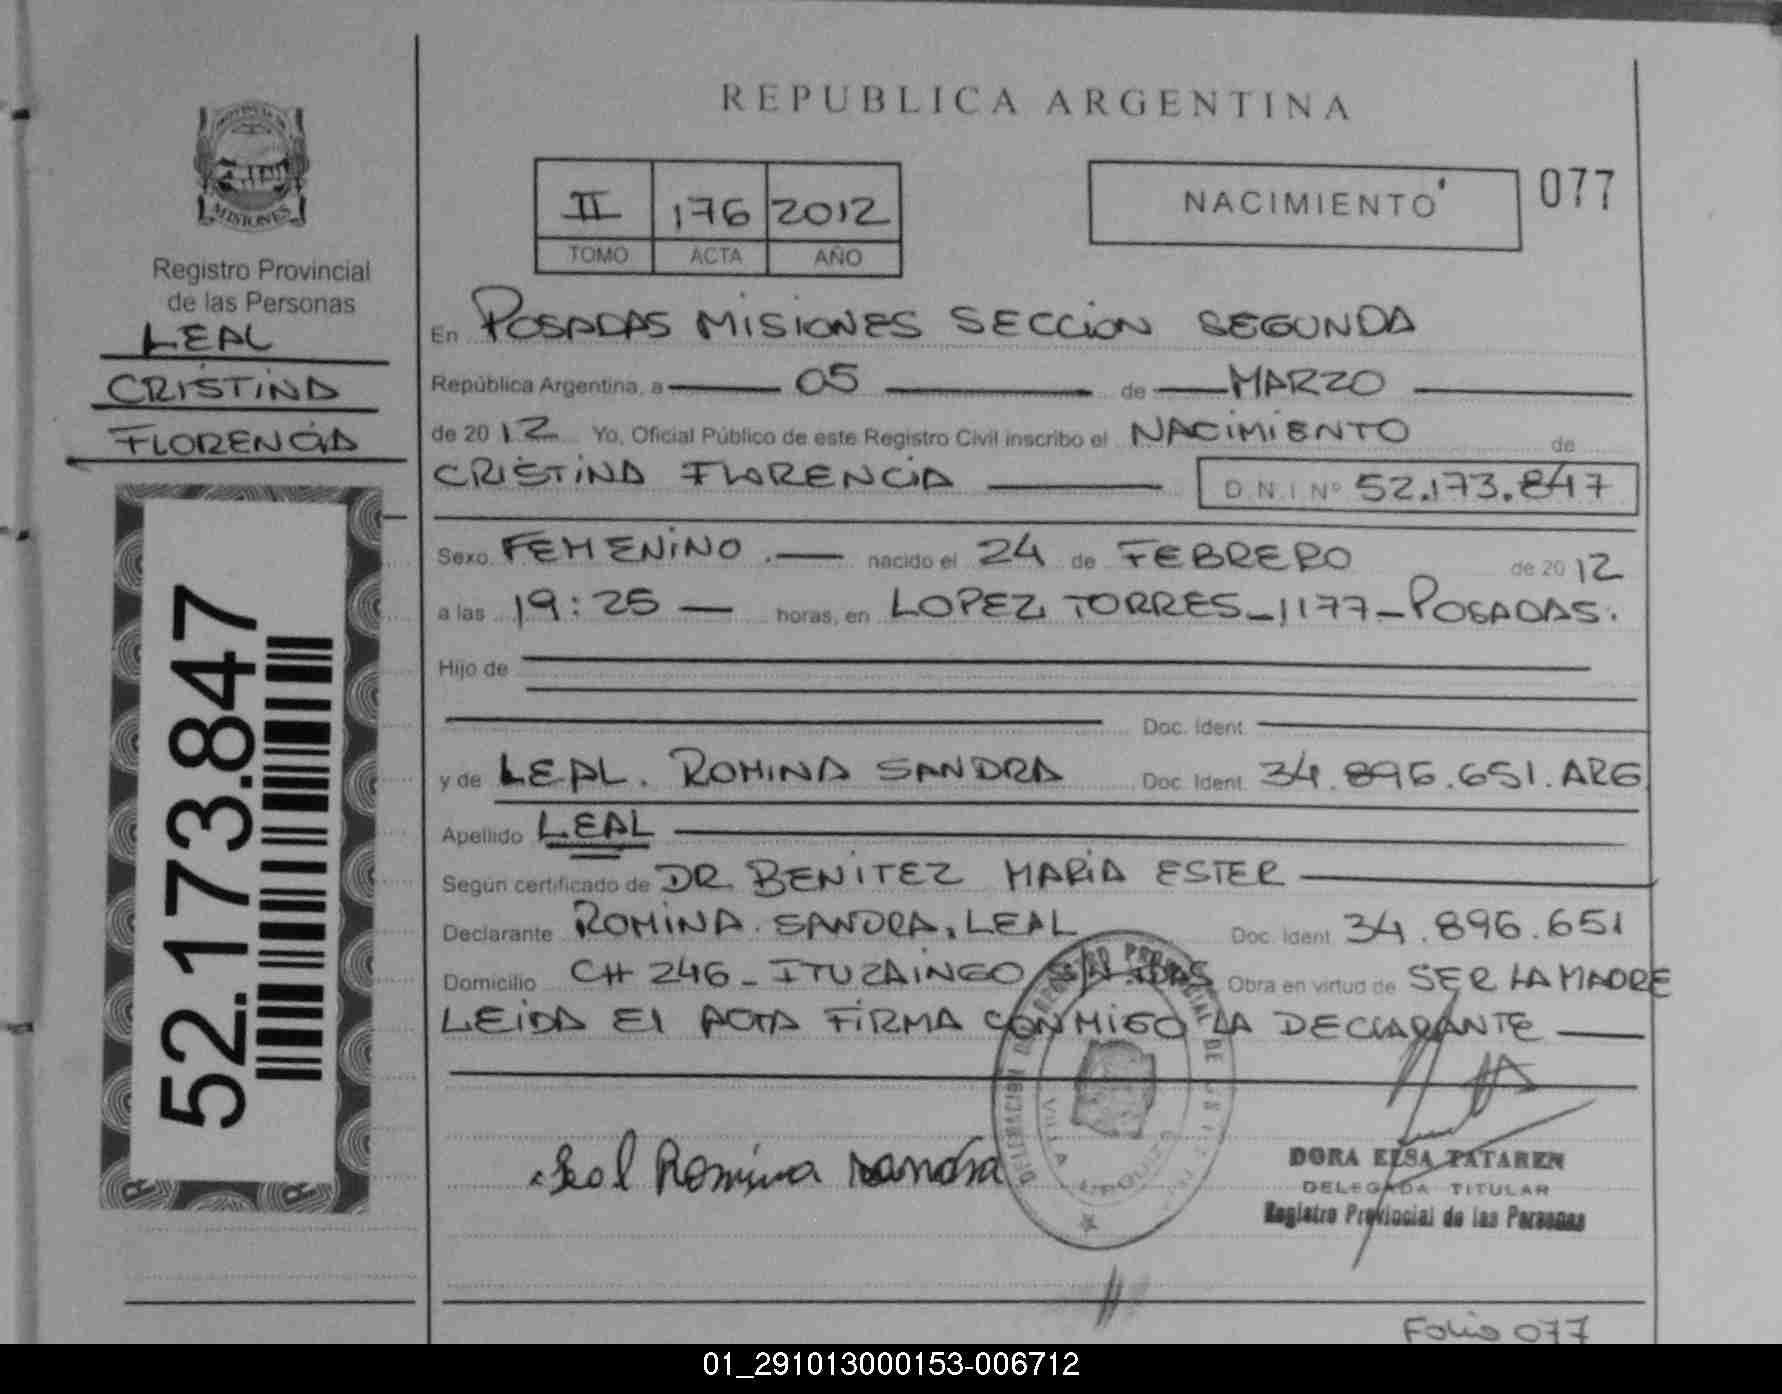 REPUBLICA ARGENTINA
II 176 2012
TOMO ACTA AÑO
NACIMIENTO 077
MISIONES
Registro Provincial
de las Personas
LEAL
CRISTINA
FLORENCIA
52.173.847
En POSADAS MISIONES SECCION SEGUNDA
República Argentina, a 05 de MARZO
de 2012 Yo, Oficial Público de este Registro Civil inscribo el NACIMIENTO de
CRISTINA FLORENCIA D.N.I Nº 52.173.847
Sexo FEMENINO. nacido el 24 de FEBRERO de 2012
a las 19:25 horas, en LOPEZ TORRES_1177_POSADAS.
Hijo de
Doc. Ident.
y de LEAL. ROMINA SANDRA Doc. Ident. 34.896.651.ARG
Apellido LEAL
Según certificado de DR. BENITEZ MARIA ESTER
Declarante ROMINA. SANDRA. LEAL Doc. Ident 34.896.651
Domicilio CH 246_ ITUZAINGO Obra en virtud de SER LA MADRE
LEIDA El ACTA FIRMA CONMIGO LA DECLARANTE
Leal Romina Sandra
DORA ELSA TATAREN
DELEGADA TITULAR
Registro Provincial de las Personas
Folio 077
01_291013000153-006712